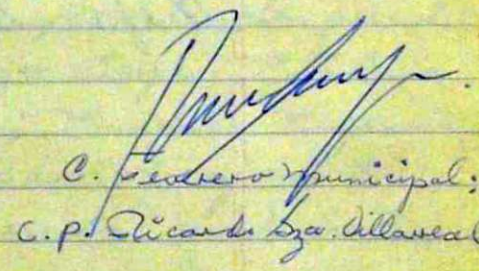 C. Tesorero Municipal:
C.P. Ricardo Gza. Villarreal